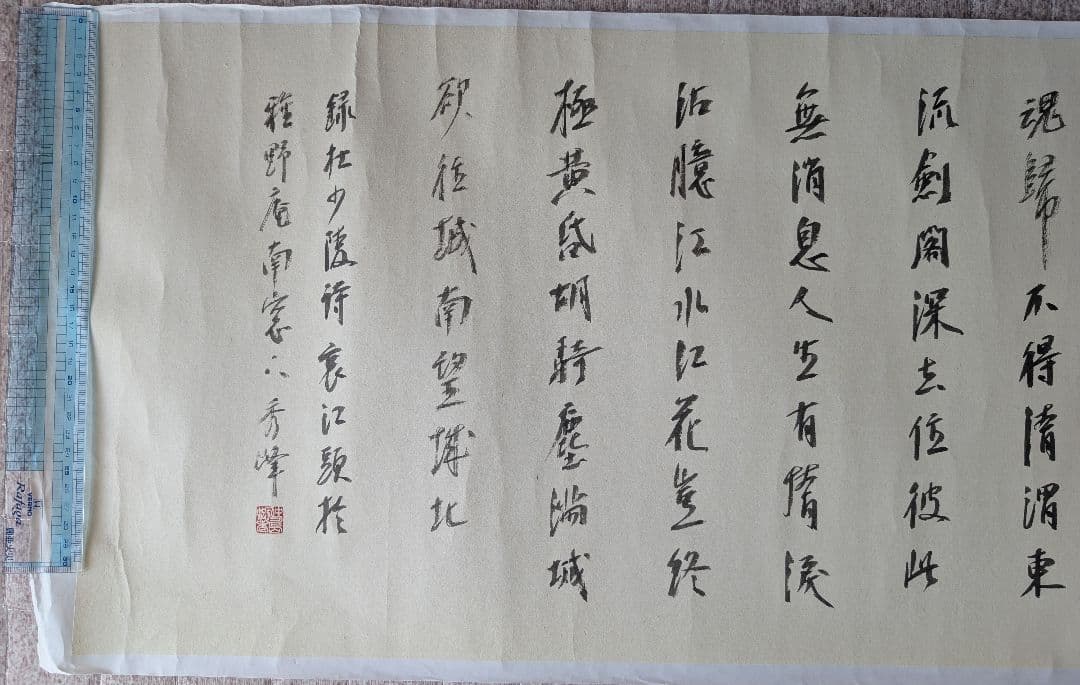 魂歸不得清渭東
流劍閣深去住彼此
無消息人生有情淚
沾臆江水江花豈終
極黄昏胡騎塵滿城
欲往城南望城北
録杜少陵詩哀江頭於
雅野庵南窓下秀峰